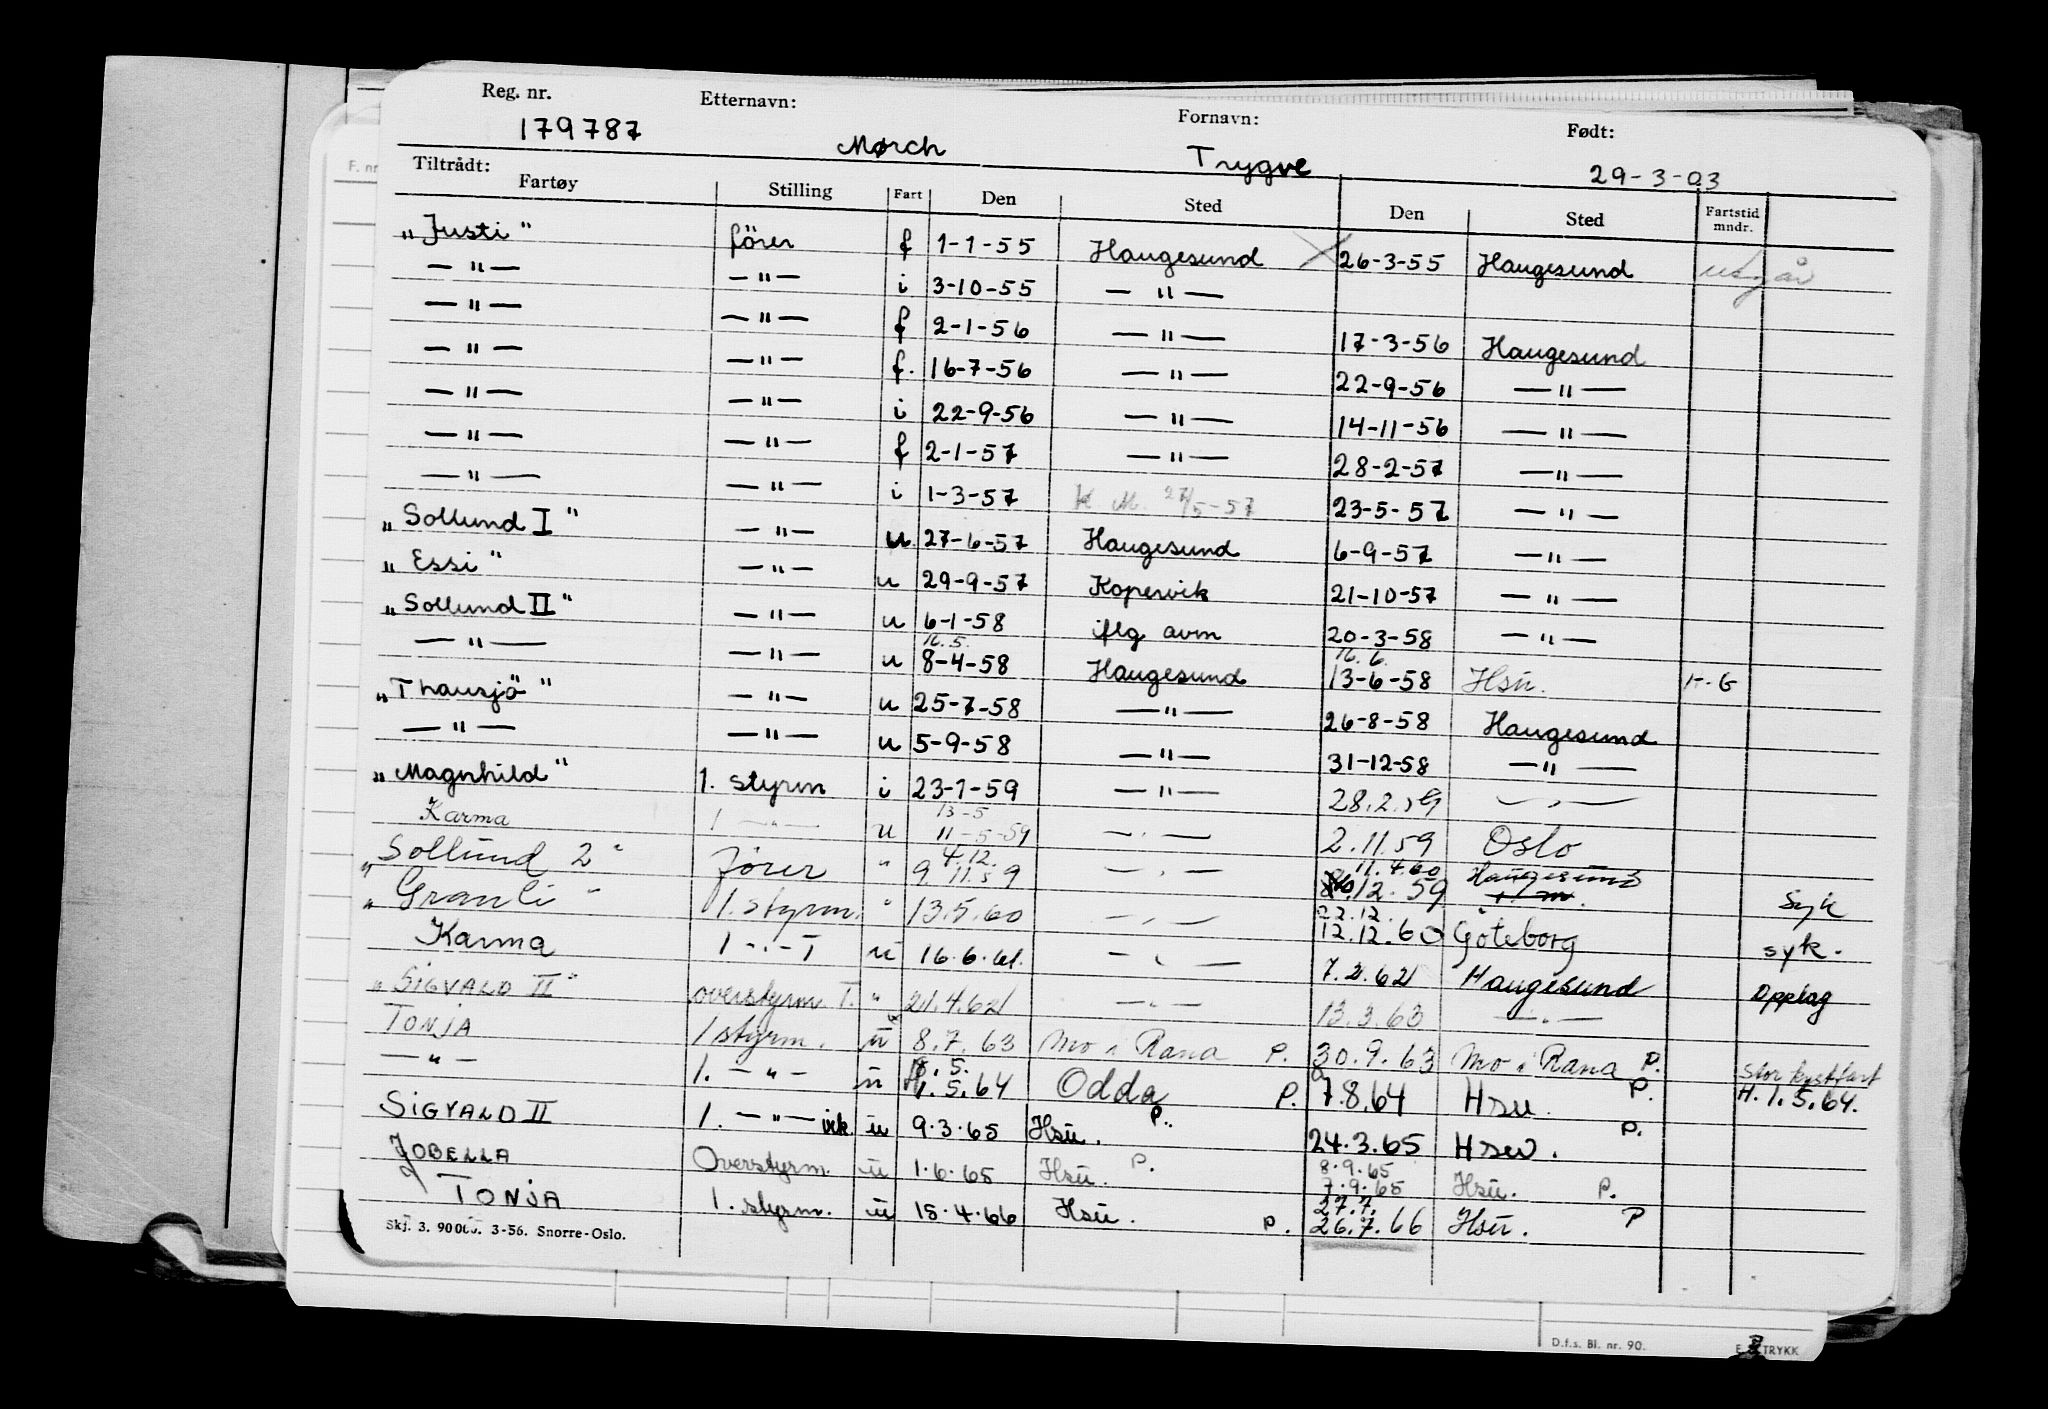 Reg. nr. Etternavn: Fornavn: Født:
179787 Mørch Trygve 29-3-03
F. nr
Tiltrådt:
Fartøy Stilling Fart Den Sted Den Sted Fartstid mndr.
"Justi" förer f 1-1-55 Haugesund 26-3-55 Haugesund utgår
— " — — " — i 3-10-55 — " —
— " — — " — f 2-1-56 — " — 17-3-56 Haugesund
— " — — " — f. 16-7-56 — " — 22-9-56 — " —
— " — — " — i 22-9-56 — " — 14-11-56 — " —
— " — — " — f 2-1-57 — " — 28-2-57 — " —
— " — — " — i 1-3-57 K M. 27/5-57 23-5-57 — " —
"Sollund I" — " — u. 27-6-57 Haugesund 6-9-57 — " —
"Essi" — " — u 29-9-57 Kopervik 21-10-57 — " —
"Sollund II" — " — u 6-1-58 iflg avm 20-3-58 — " —
16.5. 16.6.
— " — — " — u 8-4-58 Haugesund 13-6-58 Hsu. H-G
"Thausjö" — " — u 25-7-58 — " — 26-8-58 Haugesund
— " — — " — u 5-9-58 — " — 31-12-58 — " —
"Magnhild" 1. styrm i 23-1-59 — " — 28.2.59 — " —
13-5
Karma 1 — " — u 11-5-59 — " — 2.11.59 Oslo
4.12. 11.4.60 Haugesund
"Sollund 2" förer " 9.11.59 — " — 12.59 Syk
22.12.
"Granli" 1. styrm. " 13.5.60 — " — 12.12.60 Göteborg syk.
Karma 1 — " — T u 16.6.61. — " — 7.2.62 Haugesund Opplag
"SIGVALD II" overstyrm T. " 21.4.62 — " — 13.3.63 — " —
TONJA 1 styrm. u 8.7.63 Mo i Rana P. 30.9.63 Mo i Rana P. Stor kystfart
— " — 1. — " — u 1.5.64 Odda P. 7.8.64 Hsu. P. H. 1.5.64.
SIGVALD II 1. — " — vik. u 9.3.65 Hsu. P. 24.3.65 Hsu. P.
8.9.65
JOBELLA Overstyrm. u 1.6.65 Hsu. P. 7.9.65 Hsu. P.
27.7.
TONJA 1. styrm. u 15.4.66 Hsu. P. 26.7.66 Hsu. P
Skj. 3. 3-56. Snorre-Oslo.
D.f.s. Bl. nr. 90. TRYKK